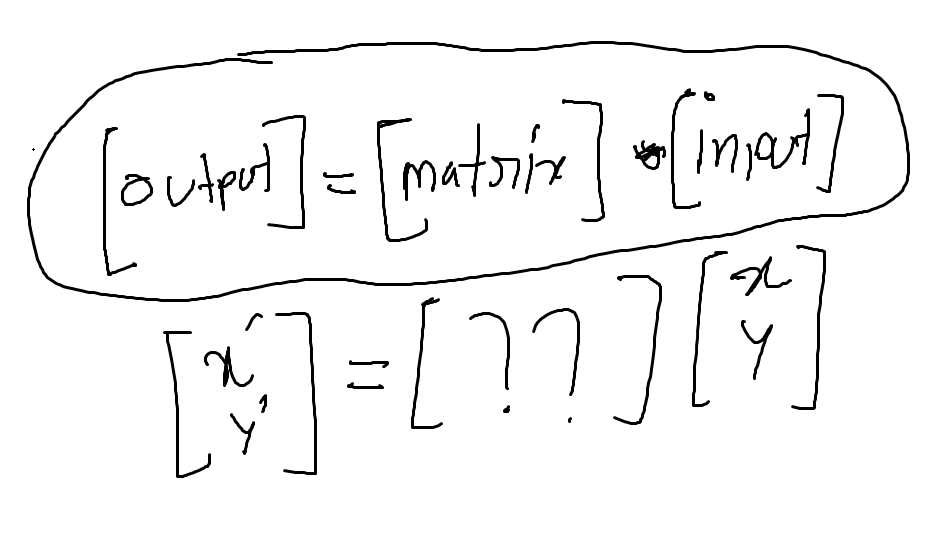 [output] = [matrix] • [input]
[x' y'] = [? ?] [x y]